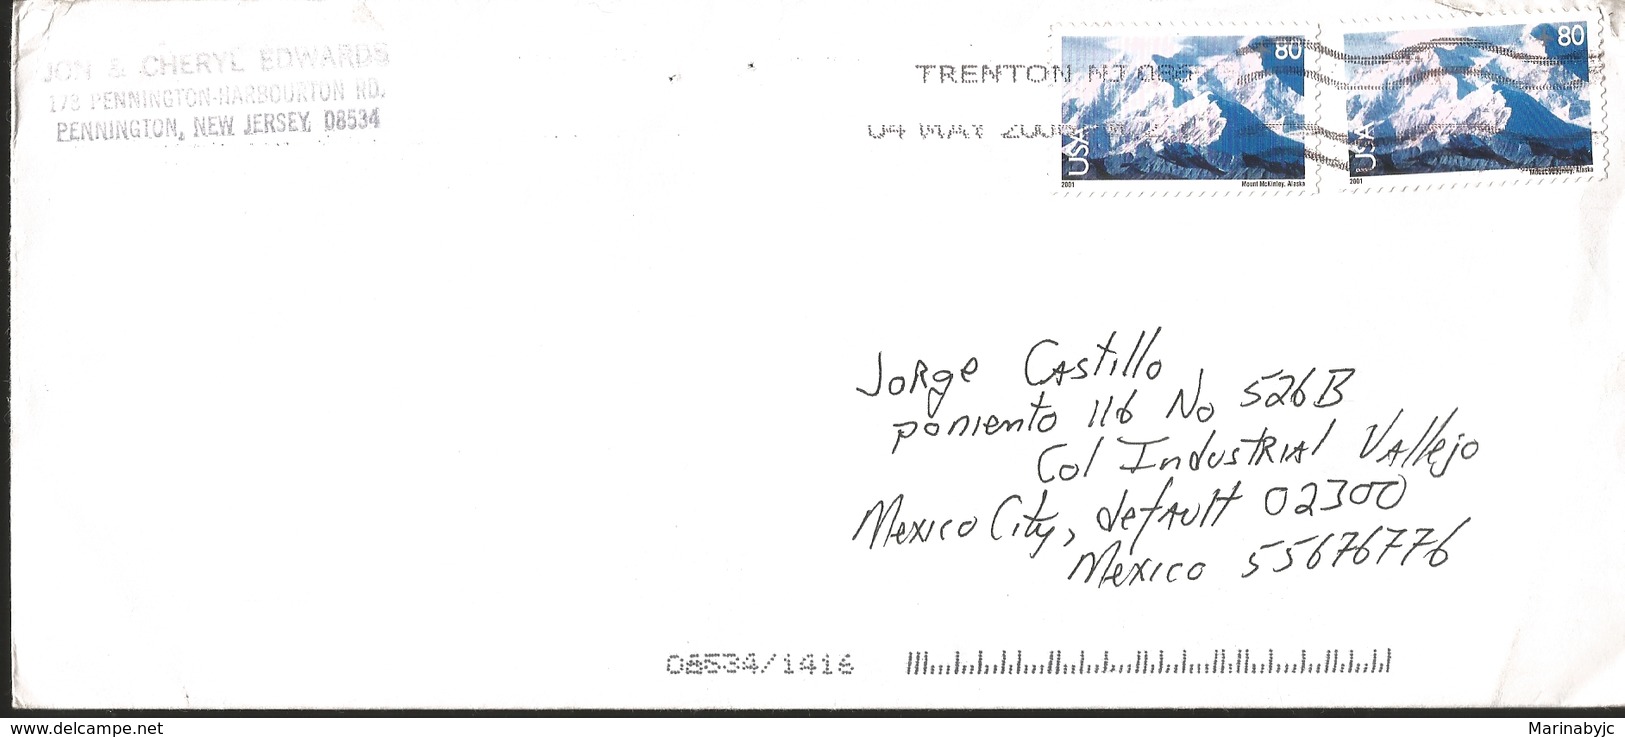 JON & CHERYL EDWARDS
178 PENNINGTON-HARBOURTON RD.
PENNINGTON, NEW JERSEY, 08534
TRENTON NJ
04 MAY
80
USA
2001
Mount McKinley, Alaska
80
USA
2001
Mount McKinley, Alaska
Jorge Castillo
poniento 116 No 526B
Col Industrial Vallejo
Mexico City, default 02300
Mexico 55676776
08534/1416
delcampe.net
Marinabyjc